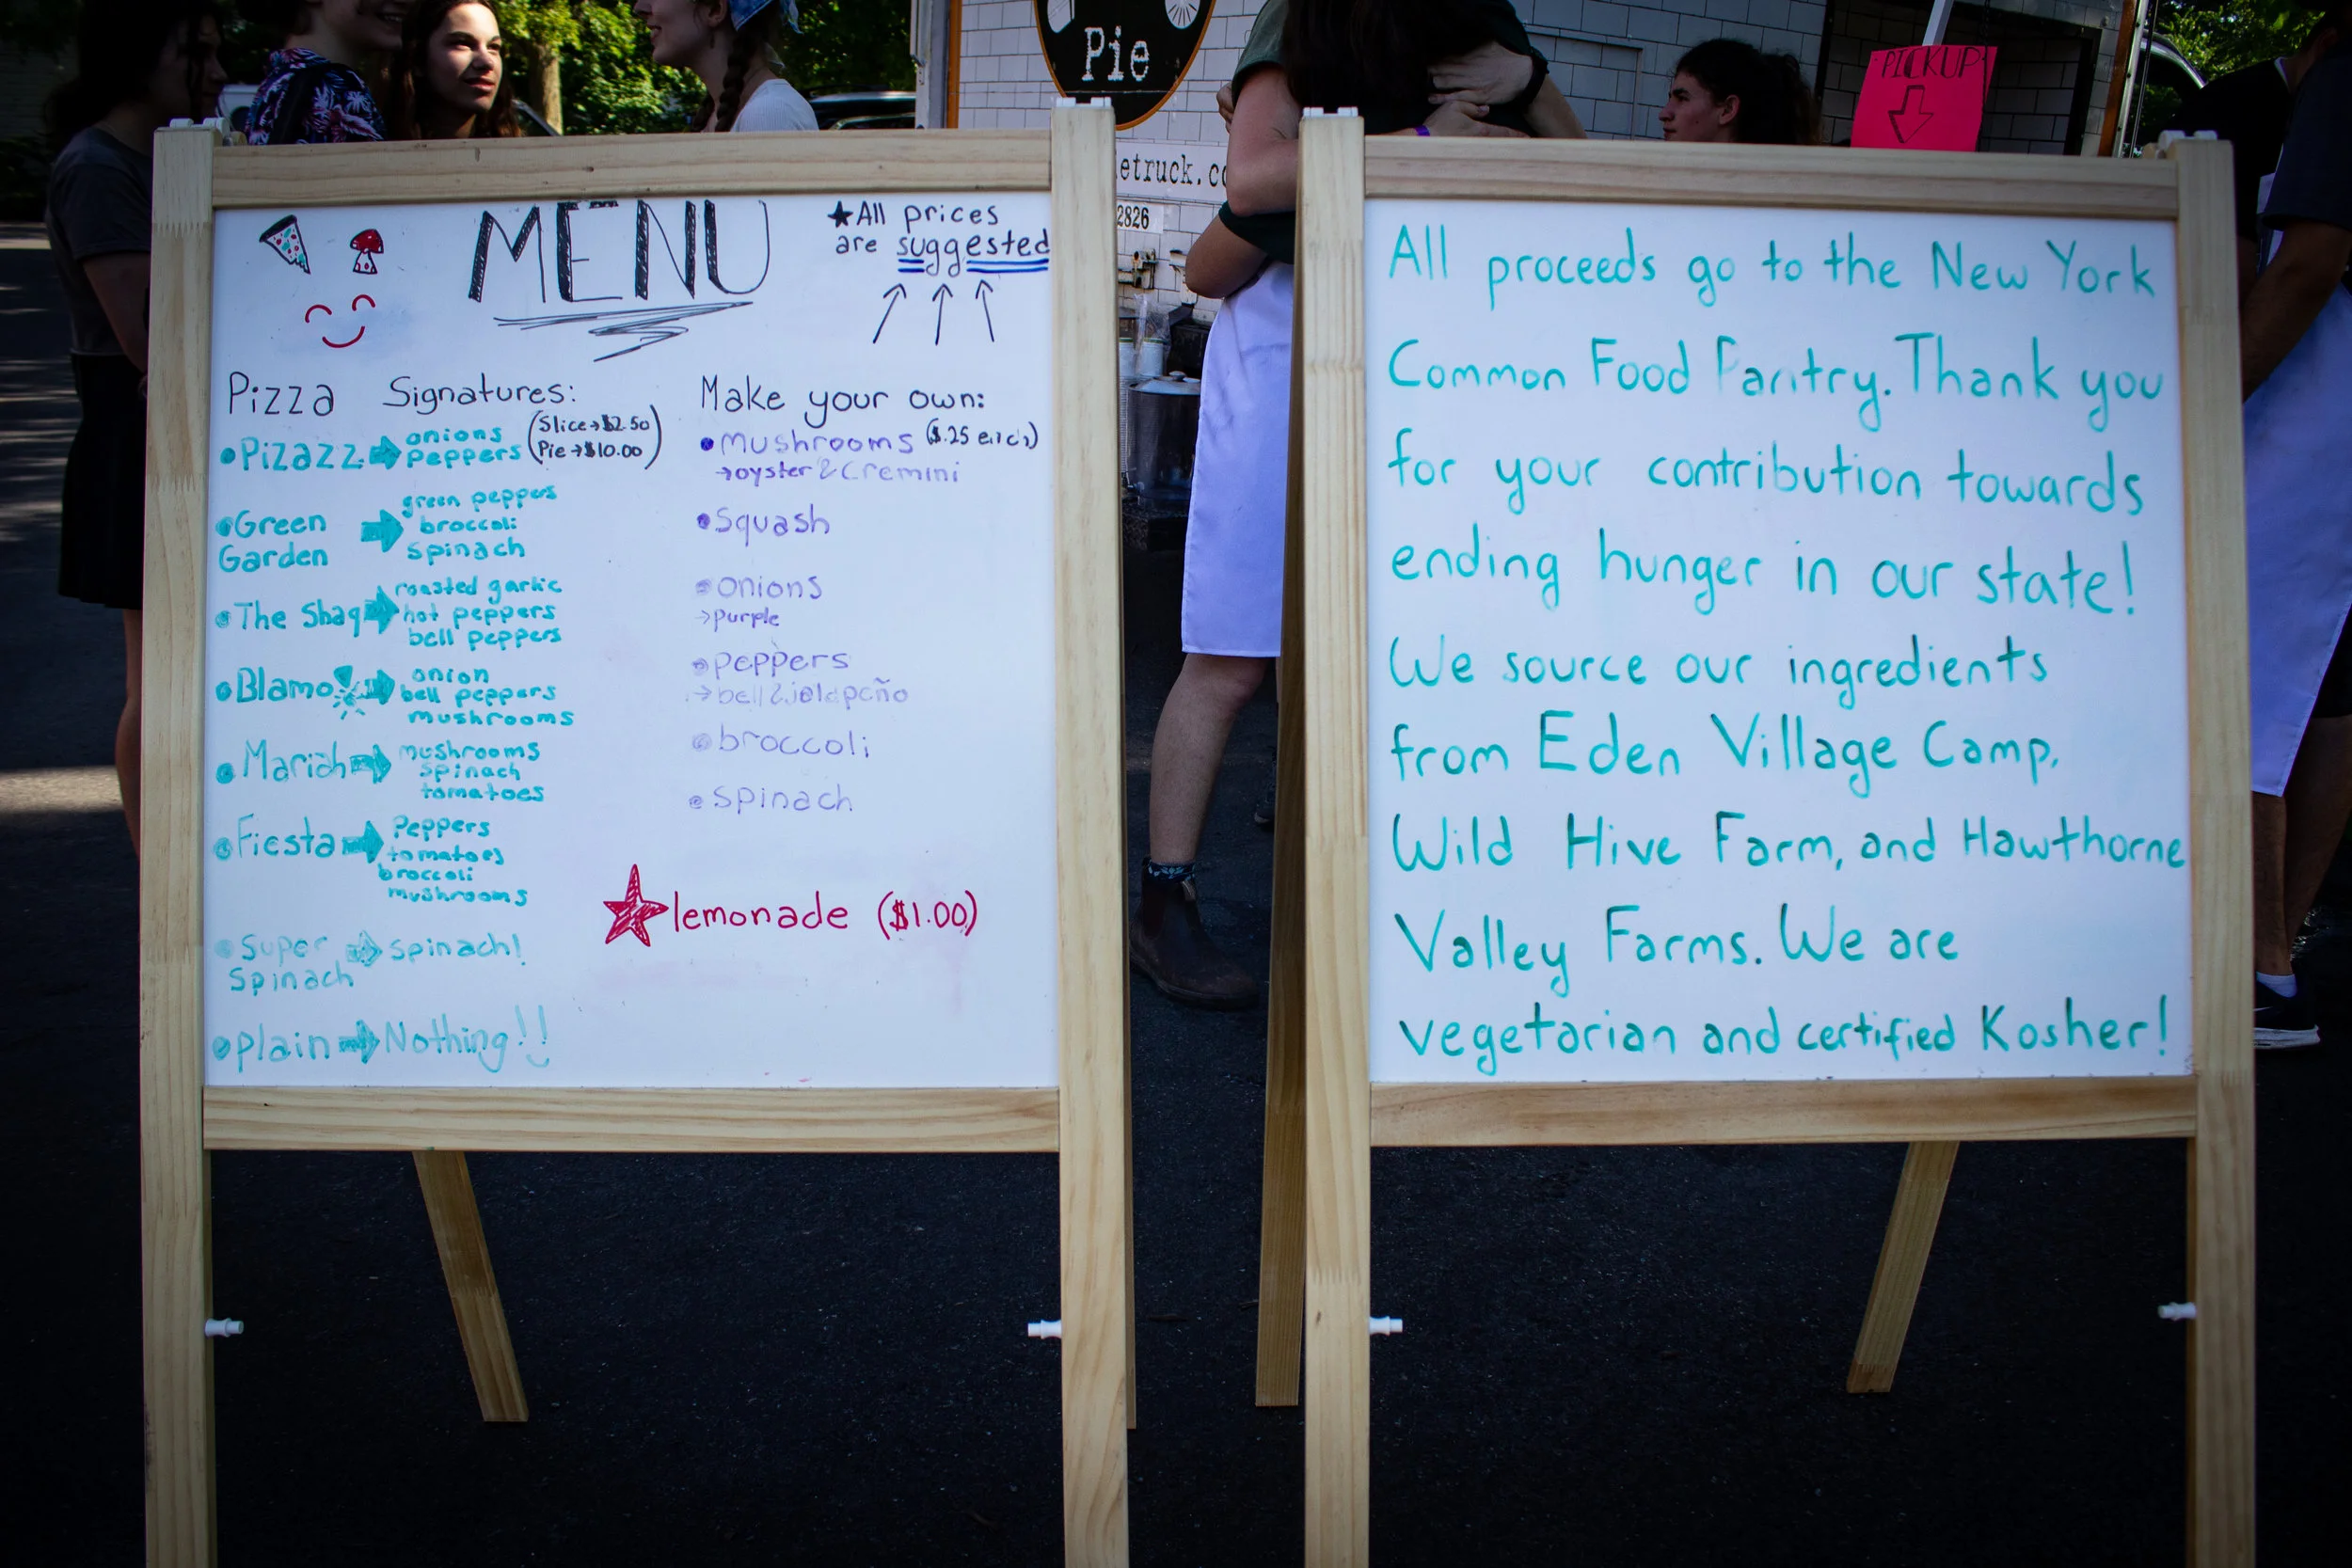 Pie
PICKUP
etruck.co
2826
MENU
★All prices
are suggested
Pizza Signatures:
(Slice→$2.50
Pie→$10.00)
•Pizazz➡onions
peppers
•Green
Garden➡green peppers
broccoli
spinach
•The Shaq➡roasted garlic
hot peppers
bell peppers
•Blamo!➡onion
bell peppers
mushrooms
•Mariah➡mushrooms
spinach
tomatoes
•Fiesta➡Peppers
tomatoes
broccoli
mushrooms
•Super
Spinach➡Spinach!
•plain➡Nothing!!
Make your own:
•mushrooms ($.25 each)
→oyster & cremini
•Squash
•onions
→purple
•peppers
→bell & jalapeño
•broccoli
•spinach
★lemonade ($1.00)
All proceeds go to the New York
Common Food Pantry. Thank you
for your contribution towards
ending hunger in our state!
We source our ingredients
from Eden Village Camp,
Wild Hive Farm, and Hawthorne
Valley Farms. We are
vegetarian and certified Kosher!